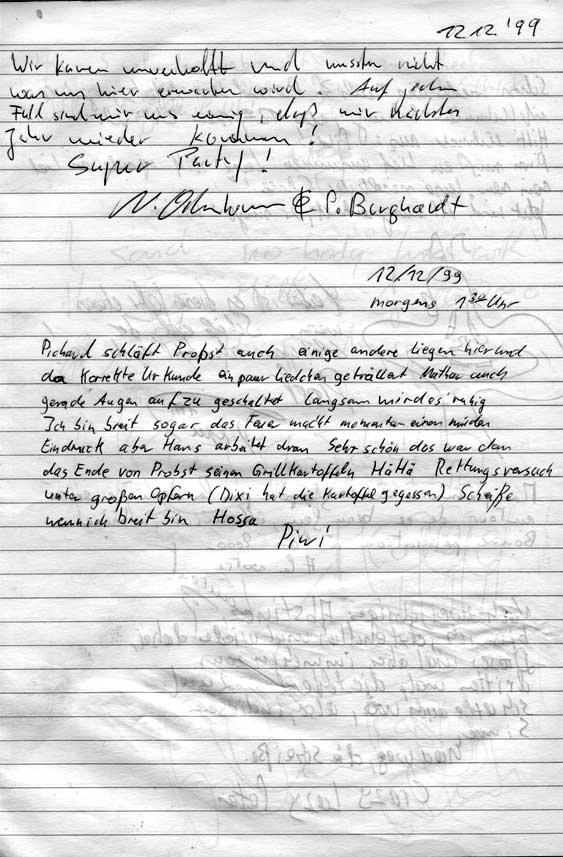 12.12.'99
Wir kamen unverhofft und wussten nicht
was uns hier erwarten wird. Auf jeden
Fall sind wir uns einig, daß wir nächstes
Jahr wieder kommen!
Super Party!
N. & P. Burghardt
12/12/99
morgens 1 30 Uhr
Pichard schläft Probst auch einige andere liegen hier und
da Korrekte Urkunde ein paar Liedchen geträllert Mathau auch
gerade Augen auf zu geschaltet langsam wird es ruhig
Ich bin breit sogar das Feuer macht momentan einen müden
Eindruck aber Hans arbeitet dran Sehr schön das war dan
das Ende von Probst seinen Grillkartoffeln HäHä Rettungsversuch
unter großen Opfern (Dixi hat die Kartoffel gegessen) Scheiße
wennich breit bin Hossa
Piwi